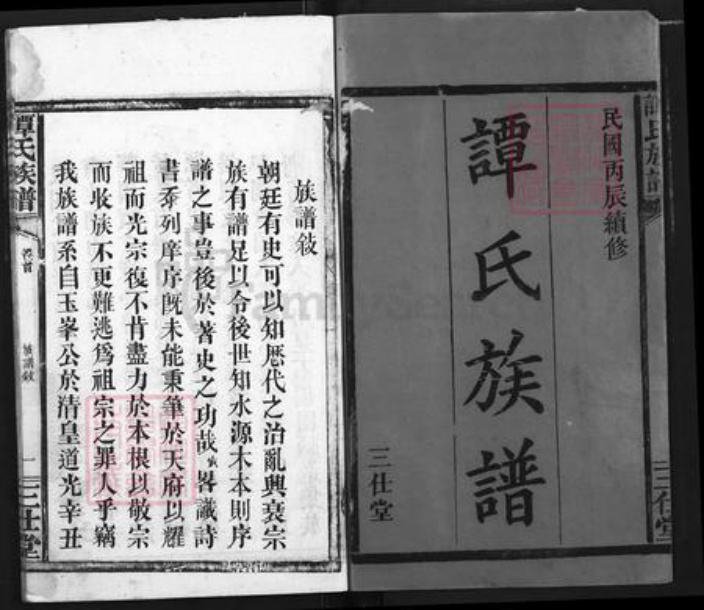 民國丙辰續修
譚氏族譜
三仕堂
譚氏族譜
三仕堂
族譜敍
朝廷有史可以知歷代之治亂興衰宗
族有譜足以令後世知水源木本則序
譜之事豈後於著史之功哉〻畧識詩
書忝列庠序旣未能秉筆於天府以耀
祖而光宗復不肯盡力於本根以敬宗
而收族不更難逃爲祖宗之罪人乎竊
我族譜系自玉峯公於清皇道光辛丑
譚氏族譜
卷首
族譜敍
一
三仕堂
FamilySearch